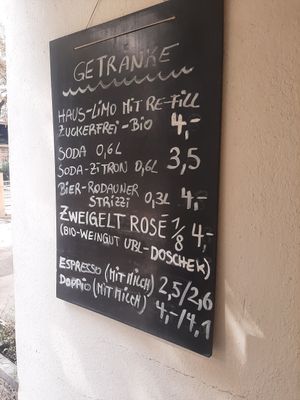 GETRÄNKE
HAUS-LIMO MIT RE-FILL
ZUCKERFREI-BIO 4,-
SODA 0,6L
SODA-ZITRON 0,6L 3,5
BIER-RODAUNER
STRIZZI 0,3L 4,-
ZWEIGELT ROSÉ 1/8 4,-
(BIO-WEINGUT UBL-DOSCHEK)
ESPRESSO (MIT MILCH) 2,5/2,6
DOPPIO (MIT MILCH) 4,-/4,1